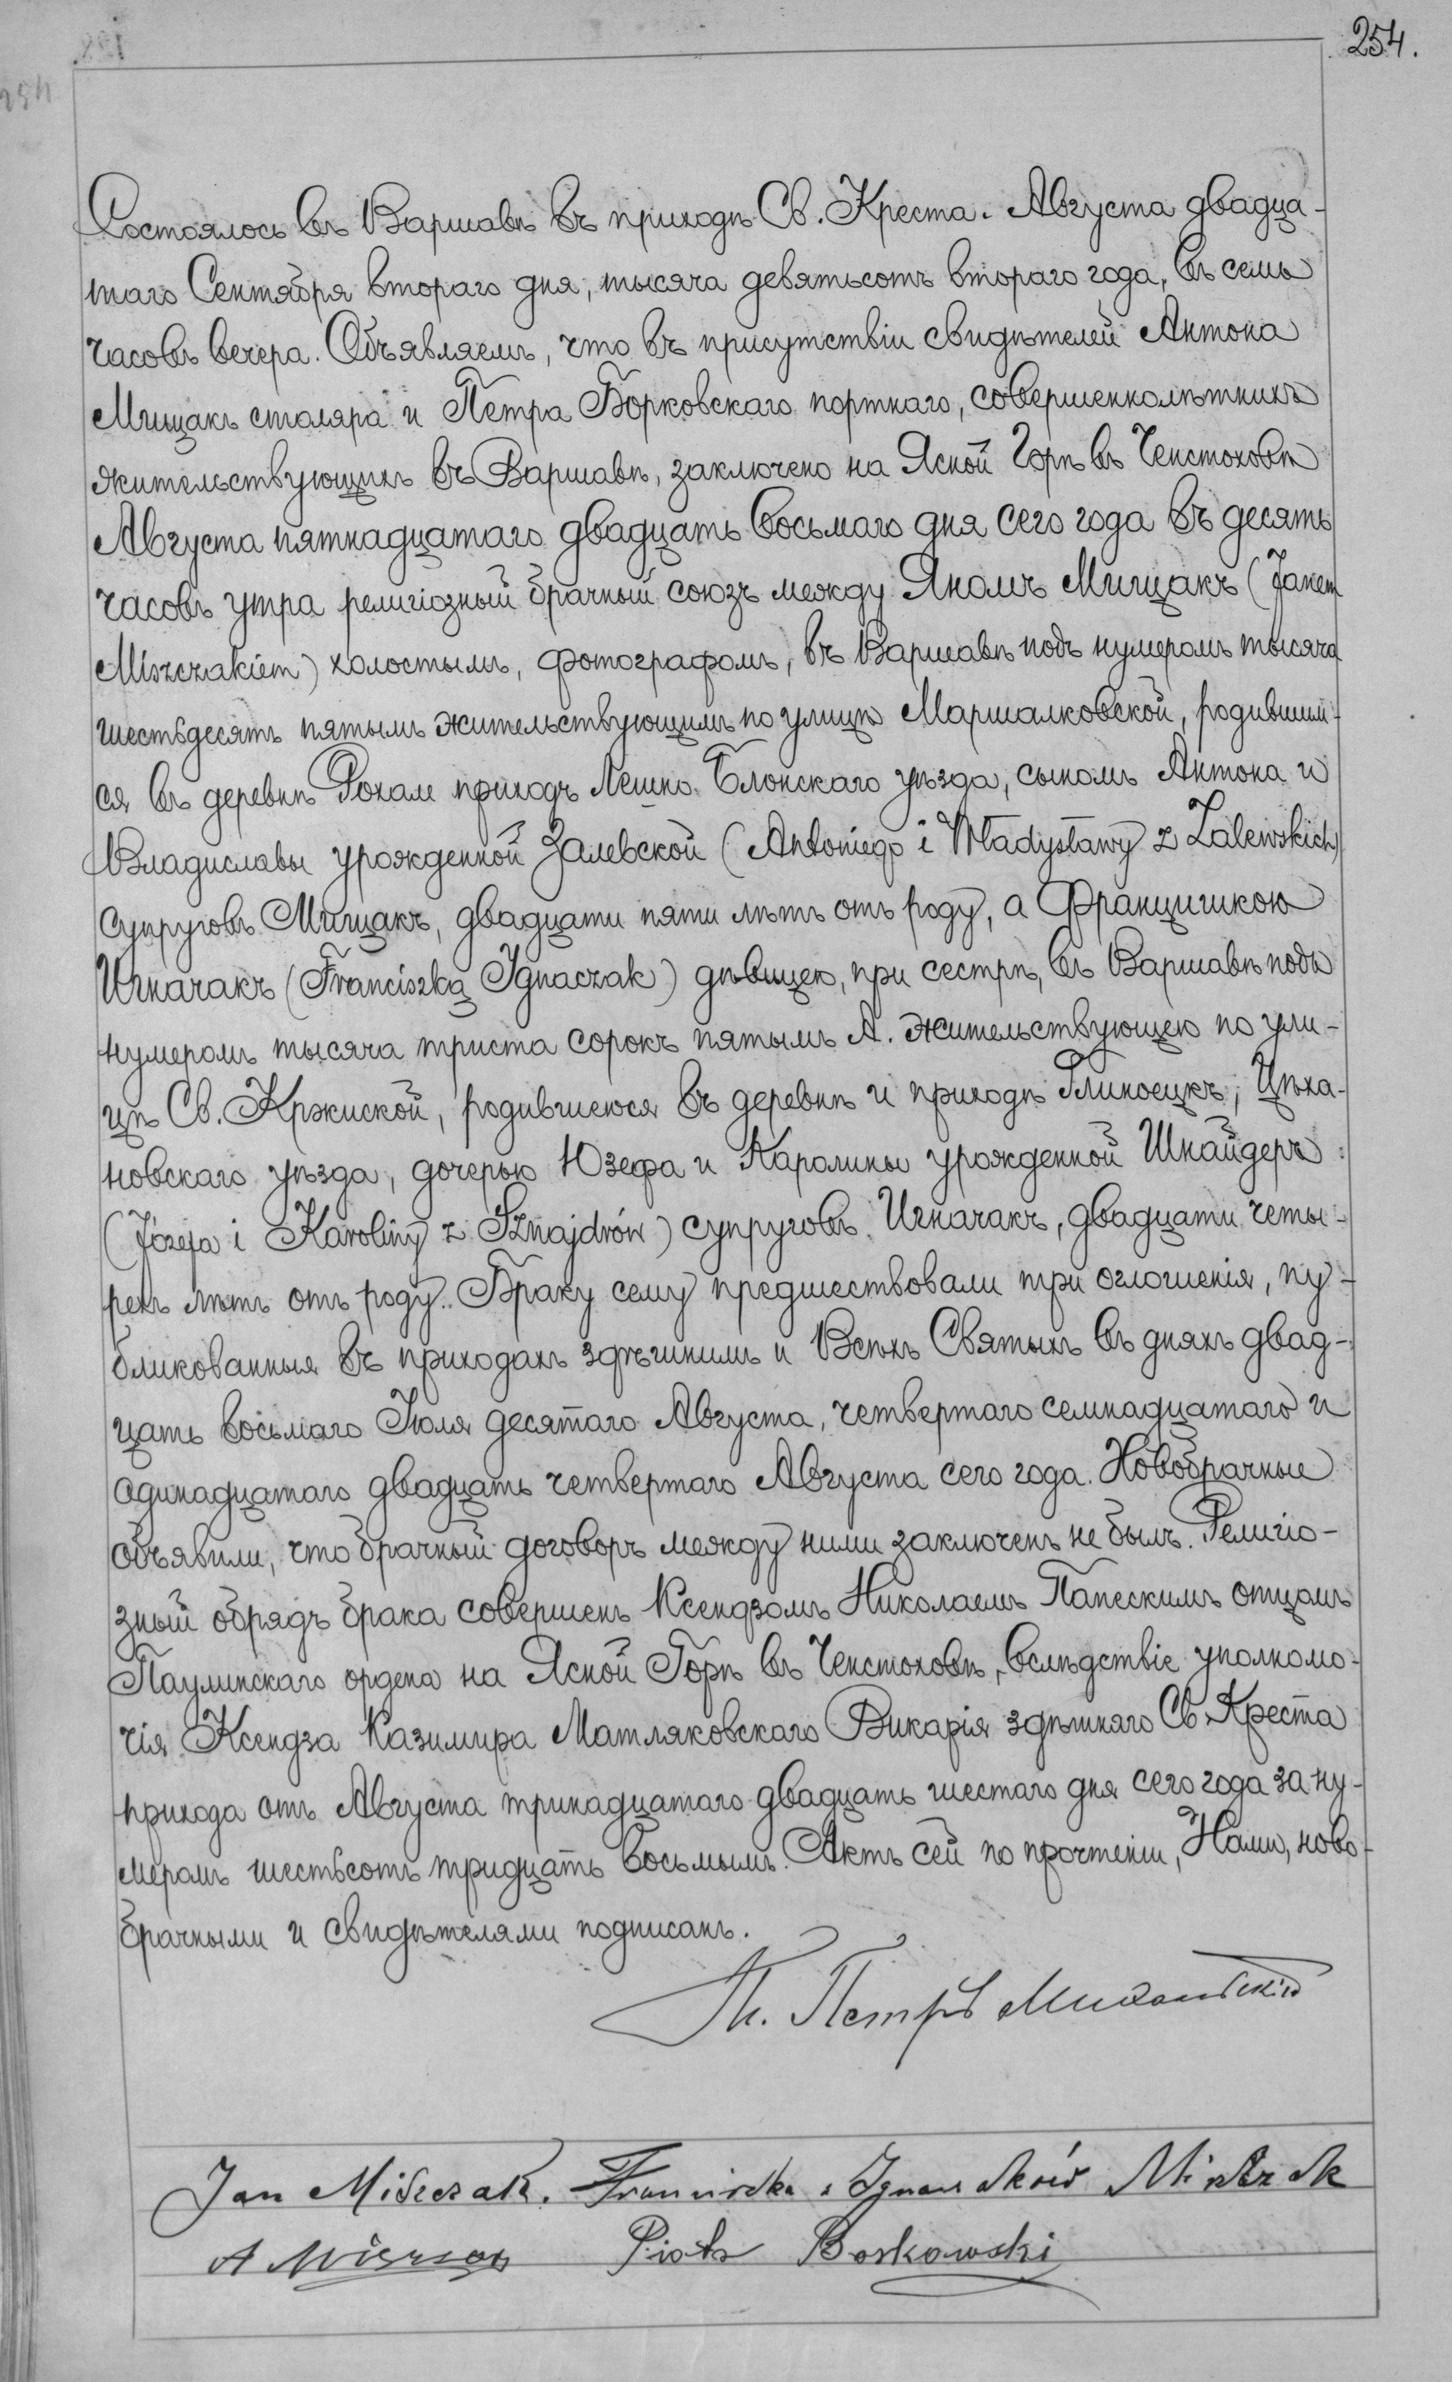 254.
Состоялось въ Варшавѣ въ приходѣ Св. Креста. Августа двадца-
таго Сентября втораго дня, тысяча девятьсотъ втораго года, въ семь
часовъ вечера. Объявляемъ, что въ присутствіи свидѣтелей Антона
Мищакъ столяра и Петра Борковскаго портнаго, совершеннолѣтнихъ
жительствующихъ въ Варшавѣ, заключено на Ясной Горѣ въ Ченстоховѣ
Августа пятнадцатаго двадцать восьмаго дня сего года въ десять
часовъ утра религіозный брачный союзъ между Яномъ Мищакъ (Janem
Miszczakiem) холостымъ, фотографомъ, въ Варшавѣ подъ нумеромъ тысяча
шестьдесятъ пятымъ жительствующимъ по улицѣ Маршалковской, родившим-
ся въ деревнѣ Рохале приходѣ Лешно Блонскаго уѣзда, сыномъ Антона и
Владиславы урожденной Залевской (Antoniego i Władysławy z Zalewskich)
супруговъ Мищакъ, двадцати пяти лѣтъ отъ роду, а Францишкою
Игначакъ (Franciszką Ignaczak) дѣвицею, при сестрѣ, въ Варшавѣ подъ
нумеромъ тысяча триста сорокъ пятымъ А. жительствующею по ули-
цѣ Св. Кржиской, родившеюся въ деревнѣ и приходѣ Глиноецкъ, Цѣха-
новскаго уѣзда, дочерью Юзефа и Каролины урожденной Шнайдеръ
(Józefa i Karoliny z Sznajdrów) супруговъ Игначакъ, двадцати четы-
рехъ лѣтъ отъ роду. Браку сему предшествовали три оглошенія, пу-
бликованныя въ приходахъ здѣшнимъ и Всѣхъ Святыхъ въ дняхъ двад-
цать восьмаго Іюля десятаго Августа, четвертаго семнадцатаго и
одинадцатаго двадцать четвертаго Августа сего года. Новобрачные
объявили, что брачный договоръ между ними заключенъ не былъ. Религіо-
зный обрядъ брака совершенъ Ксендзомъ Николаемъ Папескимъ отцомъ
Паулинскаго ордена на Ясной Горѣ въ Ченстоховѣ, вслѣдствіе уполномо-
чія Ксендза Казимира Матляковскаго Викарія здѣшняго Св. Креста
прихода отъ Августа тринадцатаго двадцать шестаго дня сего года за ну-
меромъ шестьсотъ тридцать восьмымъ. Актъ сей по прочтеніи, Нами, ново-
брачными и свидѣтелями подписанъ.
Петръ
Jan Miszczak. Franciszka z Ignaczaków Miszczak
A Miszczak Piotr Borkowski